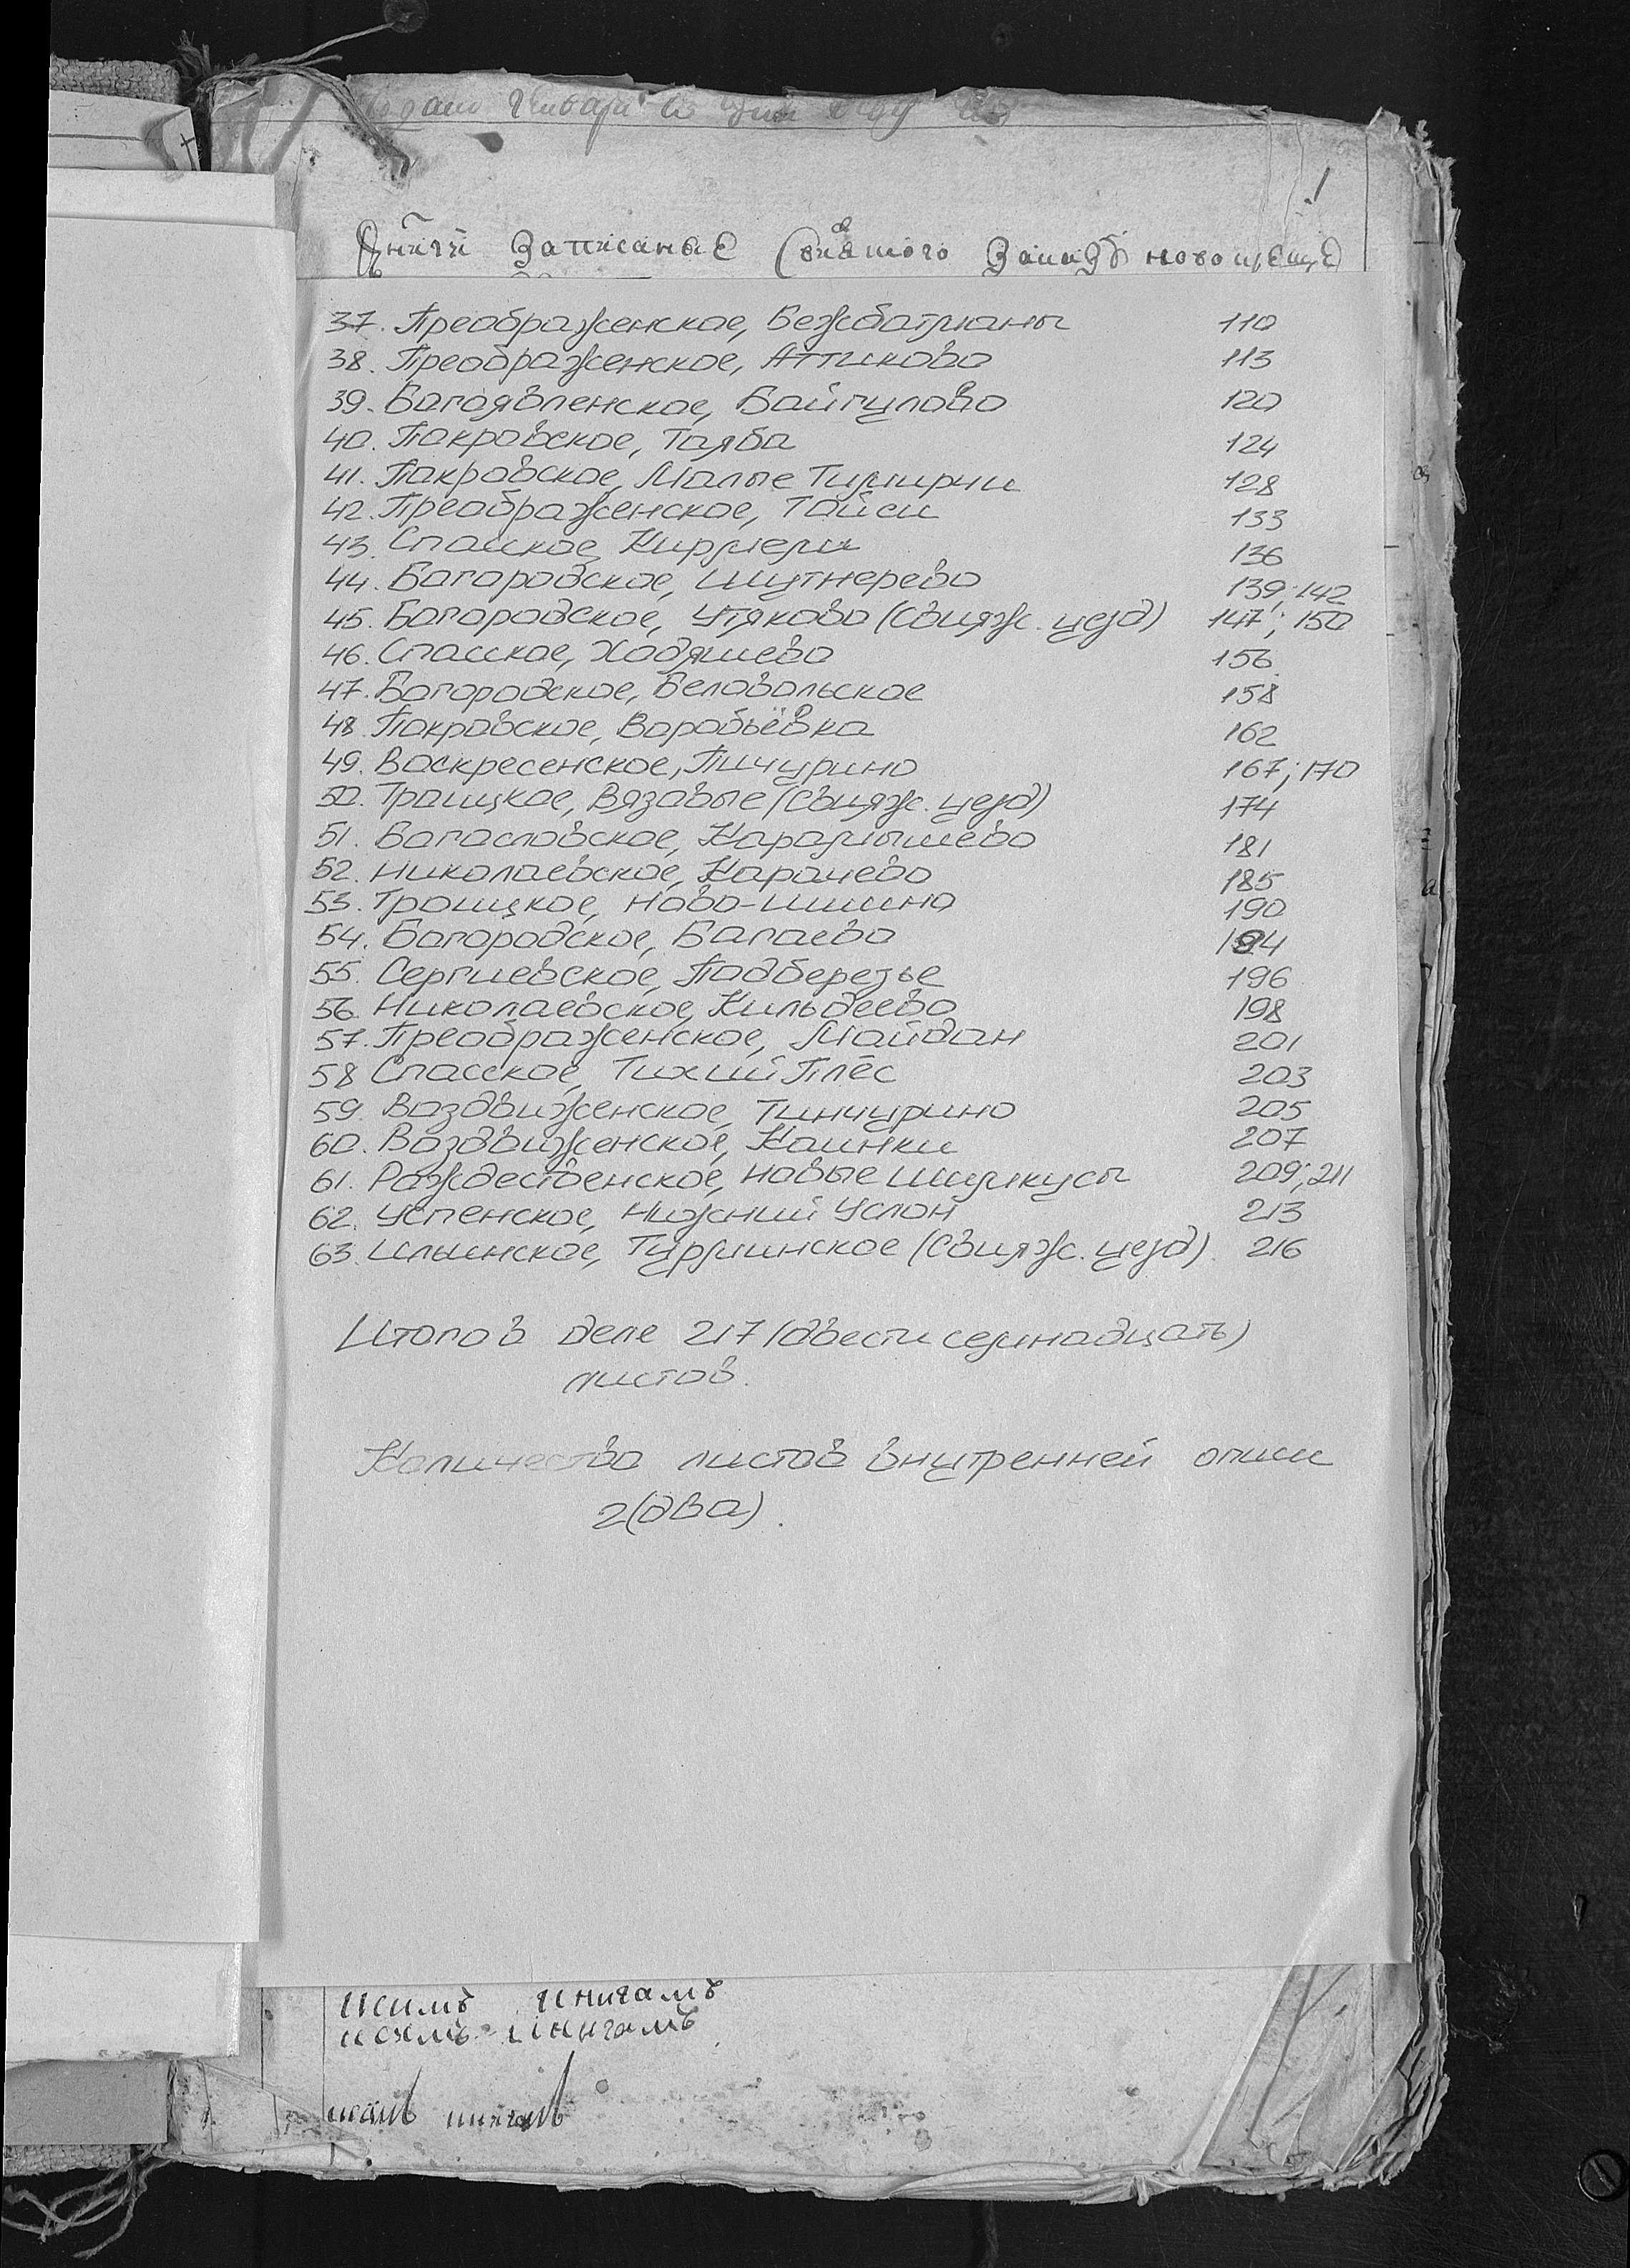 1
37. Преображенское, Бежбатманы 110
38. Преображенское, Аттиково 113
39. Богоявленское, Байгулово 120
40. Покровское, Таяба 124
41. Покровское, Малые Тимирчи 128
42. Преображенское, Тойси 133
43. Спасское, Кирмери 136
44. Богородское, Шутнерево 139; 142
45. Богородское, Утяково (Свияж. уезд) 147; 150
46. Спасское, Ходяшево 156
47. Богородское, Беловольское 158
48. Покровское, Воробьёвка 162
49. Воскресенское, Пичурино 167; 170
50. Троицкое, Вязовые (Свияж. уезд) 174
51. Богословское, Карамышево 181
52. Николаевское, Карачево 185
53. Троицкое, Ново-Ишино 190
54. Богородское, Багаево 194
55. Сергиевское, Подберезье 196
56. Николаевское, Кильдеево 198
57. Преображенское, Майдан 201
58 Спасское, Тихий Плёс 203
59. Воздвиженское, Тинчурино 205
60. Воздвиженское, Каинки 207
61. Рождественское, Новые Шимкусы 209; 211
62. Успенское, Нижний Услон 213
63. Ильинское, Турминское (Свияж. уезд). 216
Итого в деле 217 (двести семнадцать)
листов.
Количество листов внутренней описи
2 (два).
книгамъ